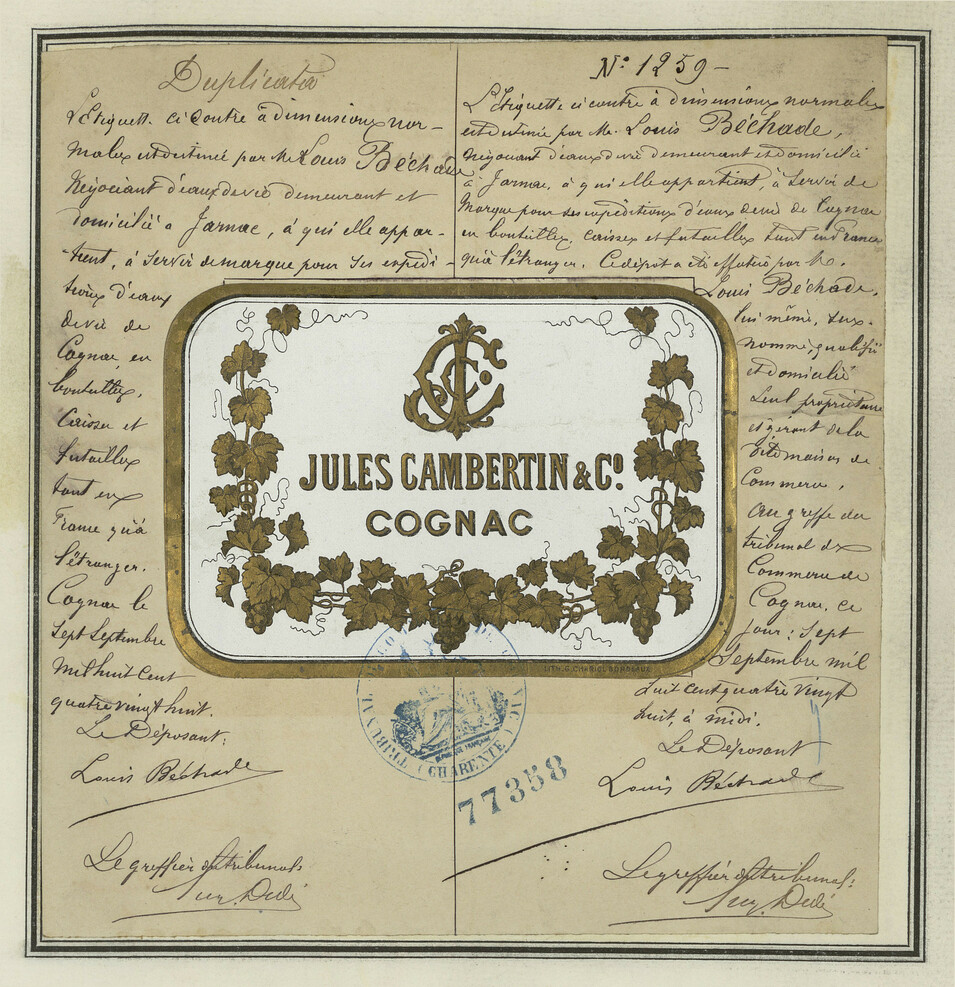 Duplicata
L'Etiquette ci contre à dimensions nor-
males est destinée par Mr Louis Béchade
Négociant d'eaux de vie demeurant et
domicilié à Jarnac, à qui elle appar-
tient, à servir de marque pour ses expédi-
tions d'eaux
de vie de
Cognac en
bouteilles,
Caisses et
futailles
tant en
France qu'à
l'étranger.
Cognac le
Sept Septembre
Mil huit Cent
quatre vingt huit.
Le Déposant:
Louis Béchade
Le greffier du tribunal:
No 1259 -
L'Etiquette ci contre à dimensions normales
est destinée par Mr. Louis Béchade,
Négociant d'eaux de vie demeurant et domicilié
à Jarnac, à qui elle appartient, à servir de
Marque pour ses expéditions d'eaux de vie de Cognac
en bouteilles, caisses et futailles tant en France
qu'à l'étranger. Ce dépot a été effectué par M.
Louis Béchade,
lui même, sus-
nommé, qualifié
et domicilié
seul propriétaire
et gérant de la
dite maison de
Commerce,
au greffe du
tribunal de
Commerce de
Cognac, ce
jour: Sept
Septembre mil
huit cent quatre vingt
huit, à midi.
Le Déposant
Louis Béchade
Le greffier du tribunal:
JULES CAMBERTIN & Co.
COGNAC
LITH. G. CHARIOL BORDEAUX
TRIBUNAL DE COMMERCE DE COGNAC (CHARENTE)
77358